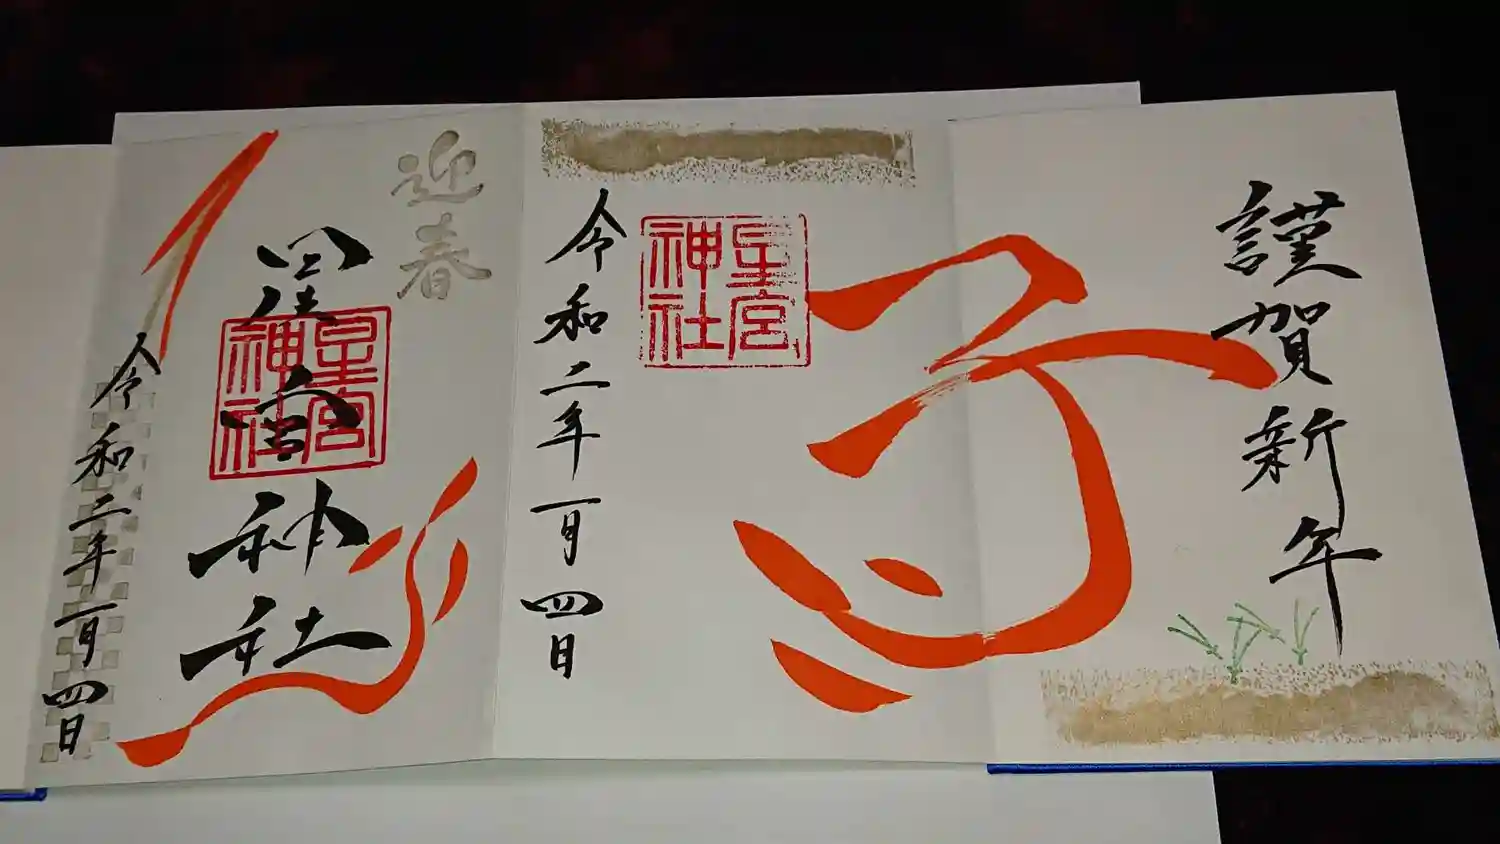 謹賀新年
子
星宮
神社
令和二年一月四日
迎春
星宮神社
星宮
神社
令和三年一月四日